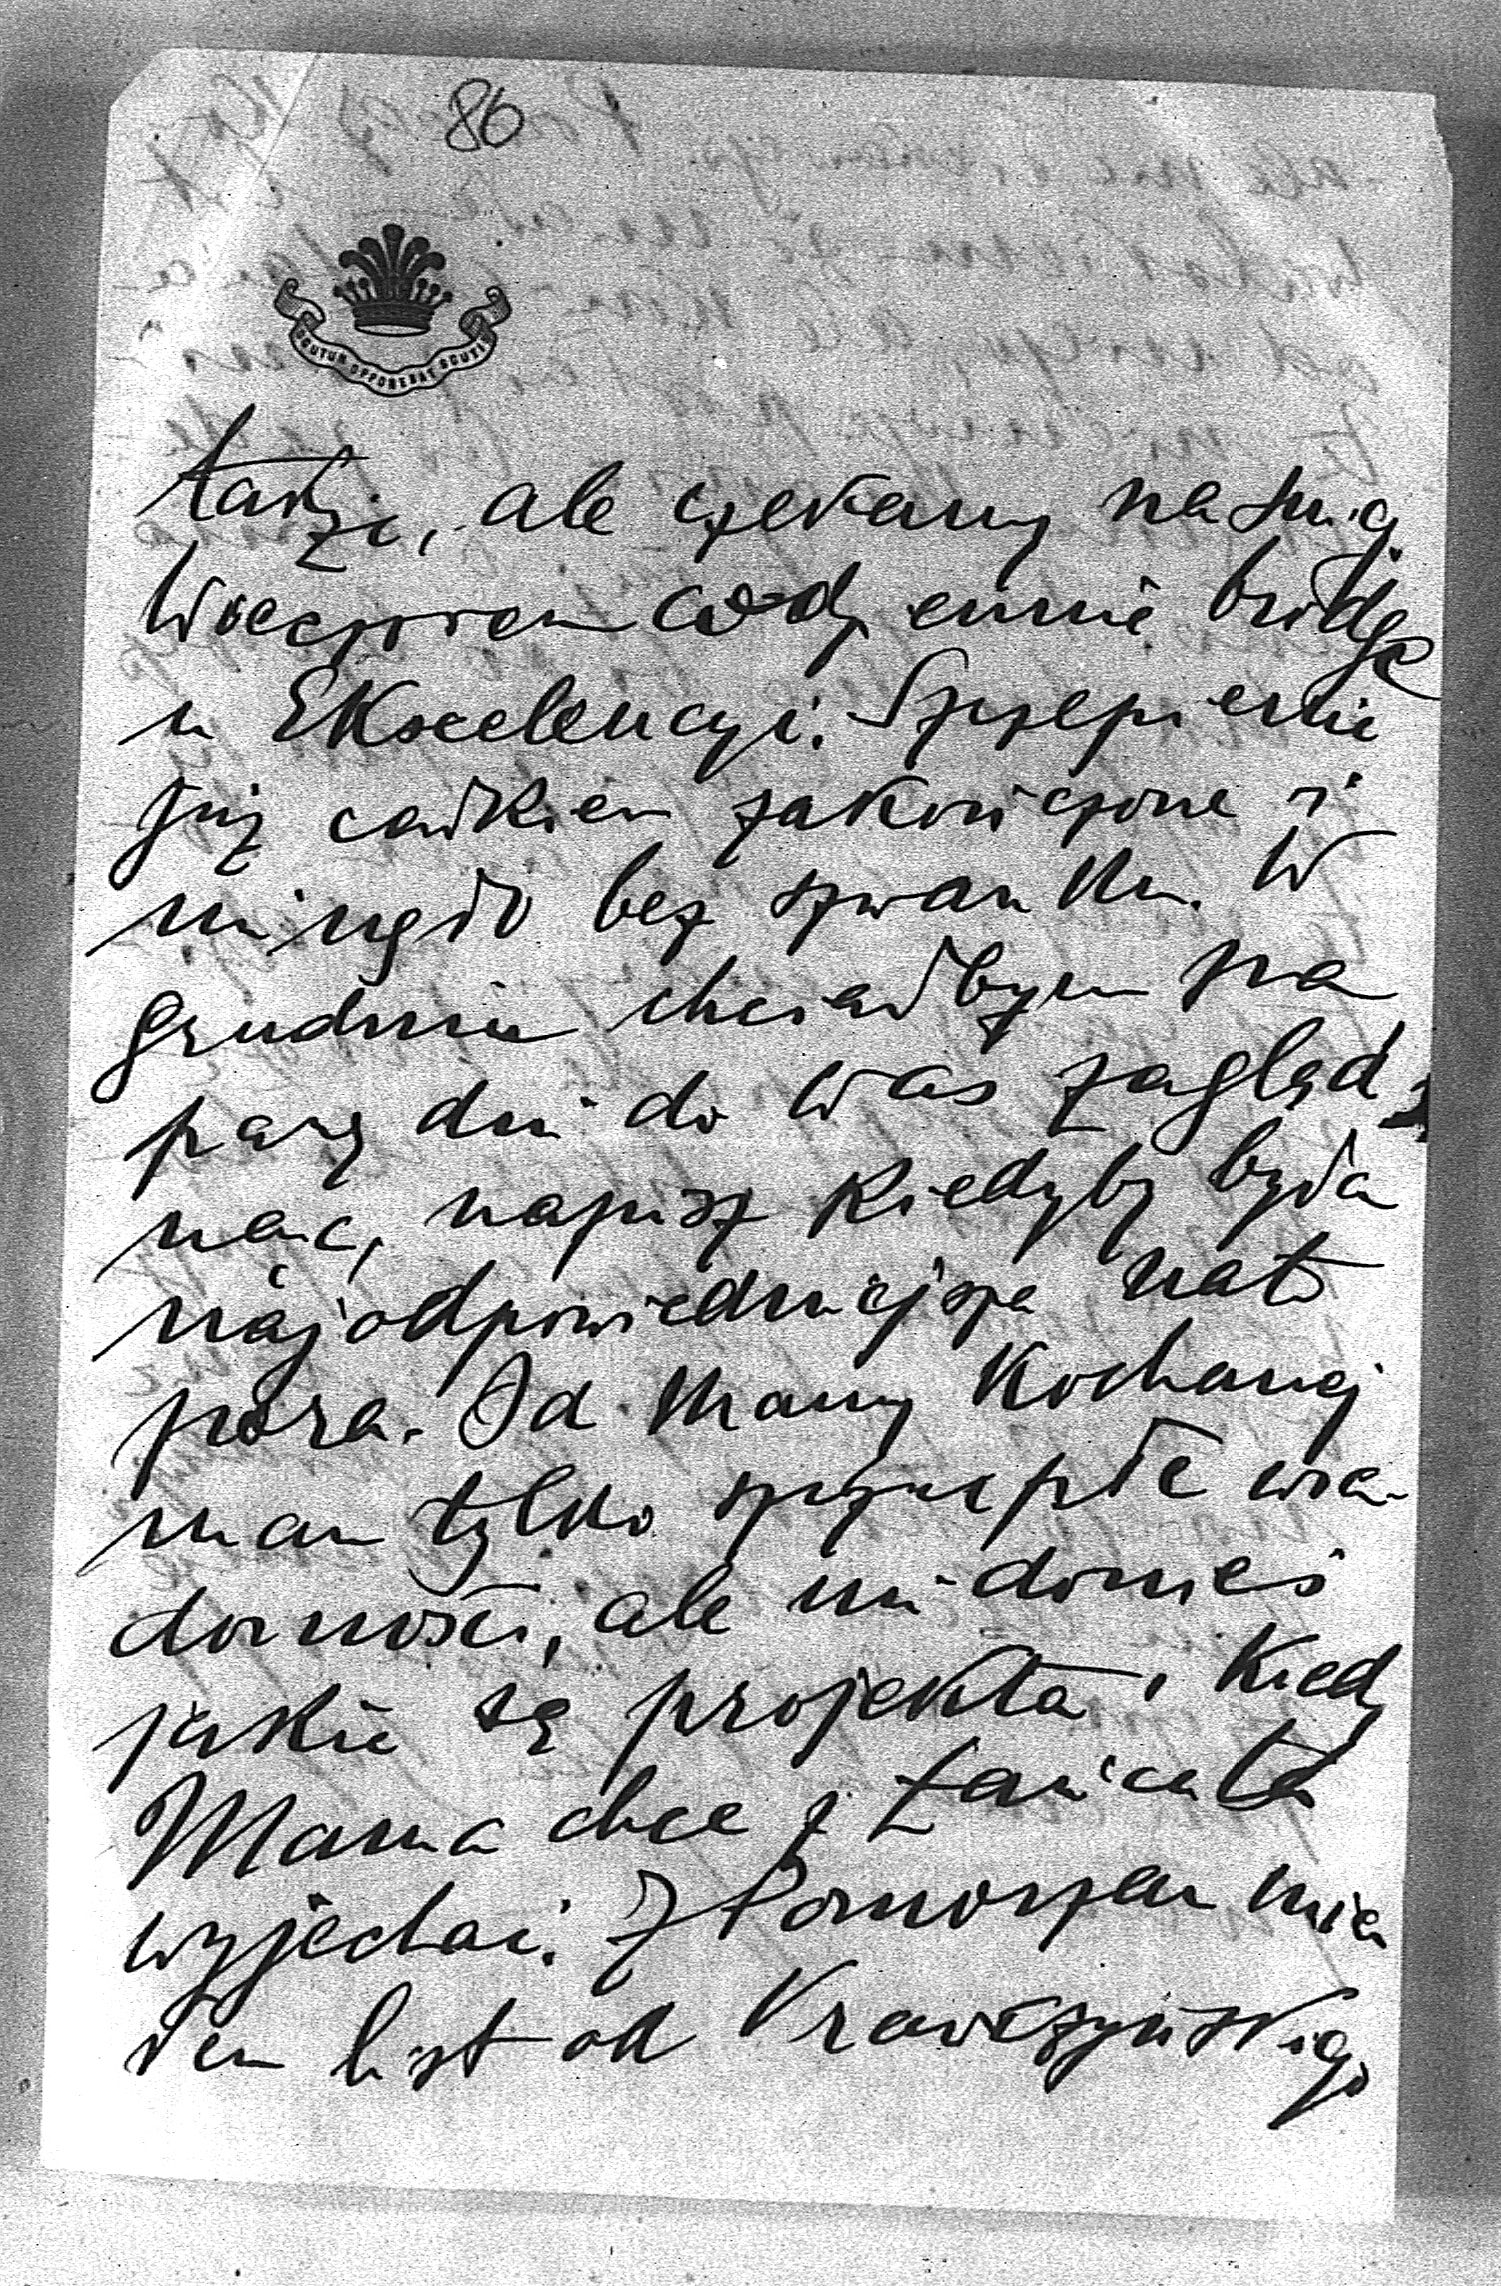 86
SCUTUM OPPONEBAT SCUTIS
także, ale czekamy na śnieg
Wieczorem codziennie bridge
u Ekscelencyi. Szczepienie
już całkiem zakończone i
minęło bez szwanku. W
grudniu chciałbym na
parę dni do Was zagląd
nąć, napisz kiedyby była
najodpowiedniejsza na to
pora. Od Mamy Kochanej
mam tylko szczupłe wia-
domości, ale mi donieś
jakie są projekta, kiedy
Mama chce z Łańcuta
wyjechać. Z Pomorzan mia
łem list od Krawczyńskiego